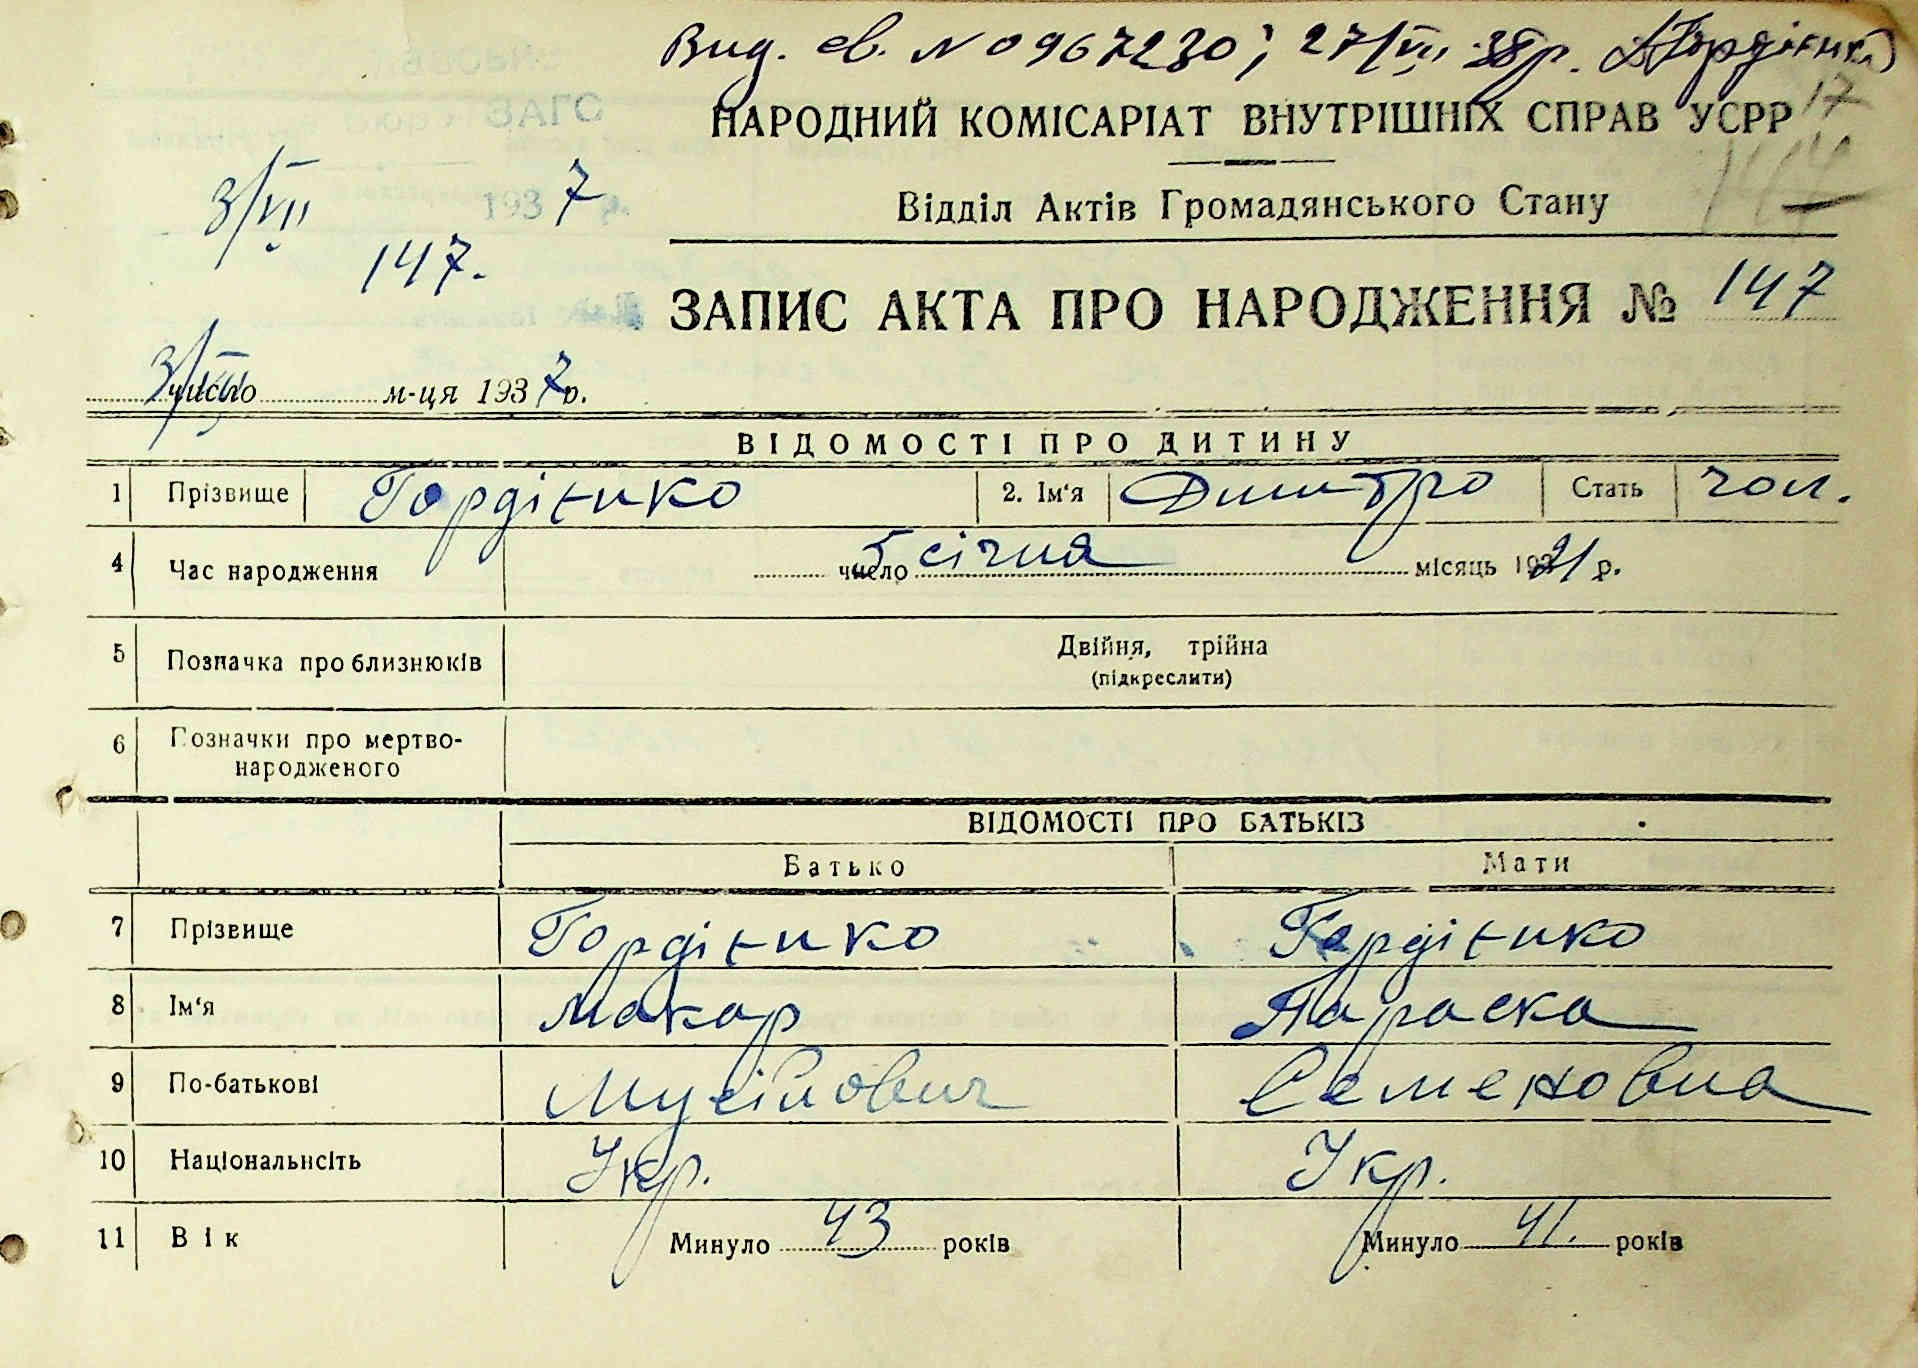 Вид. св. № 0967230; 27/VII 38р. Гордієнко
17
НАРОДНИЙ КОМІСАРІАТ ВНУТРІШНІХ СПРАВ УСРР
ЗАГС
3/VII 1937
Відділ Актів Громадянського Стану
147.
ЗАПИС АКТА ПРО НАРОДЖЕННЯ № 147
3/VII число м-ця 1937 р.
ВІДОМОСТІ ПРО ДИТИНУ
1 Прізвище Гордієнко 2. Ім‘я Дмитро Стать чол.
4 Час народження 5 число січня місяць 1921 р.
5 Позначка про близнюків Двійня, трійна
(підкреслити)
6 Позначки про мертво-
народженого
ВІДОМОСТІ ПРО БАТЬКІВ
Батько Мати
7 Прізвище Гордієнко Гордієнко
8 Ім‘я Макар Параска
9 По-батькові Мусійович Семеновна
10 Національність Укр. Укр.
11 Вік Минуло 43 років Минуло 41. років